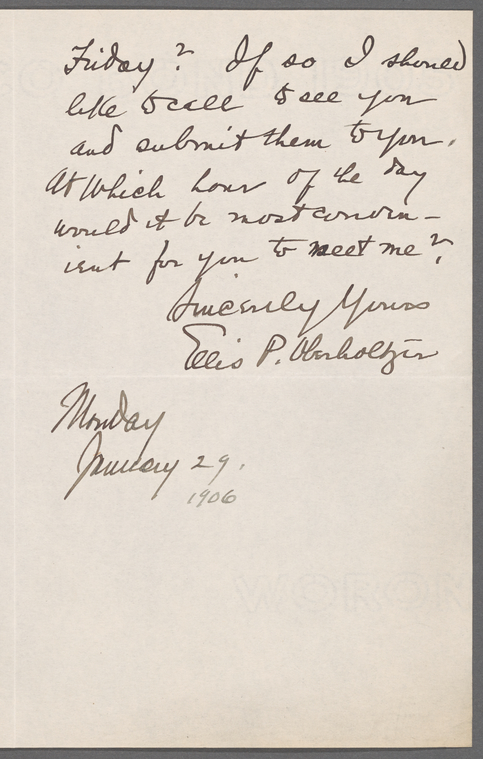 Friday? If so I should
like to call to see you
and submit them to you.
At which hour of the day
would it be most conven-
ient for you to meet me?
Sincerely Yours
Ellis P. Oberholtzer
Monday
January 29.
1906